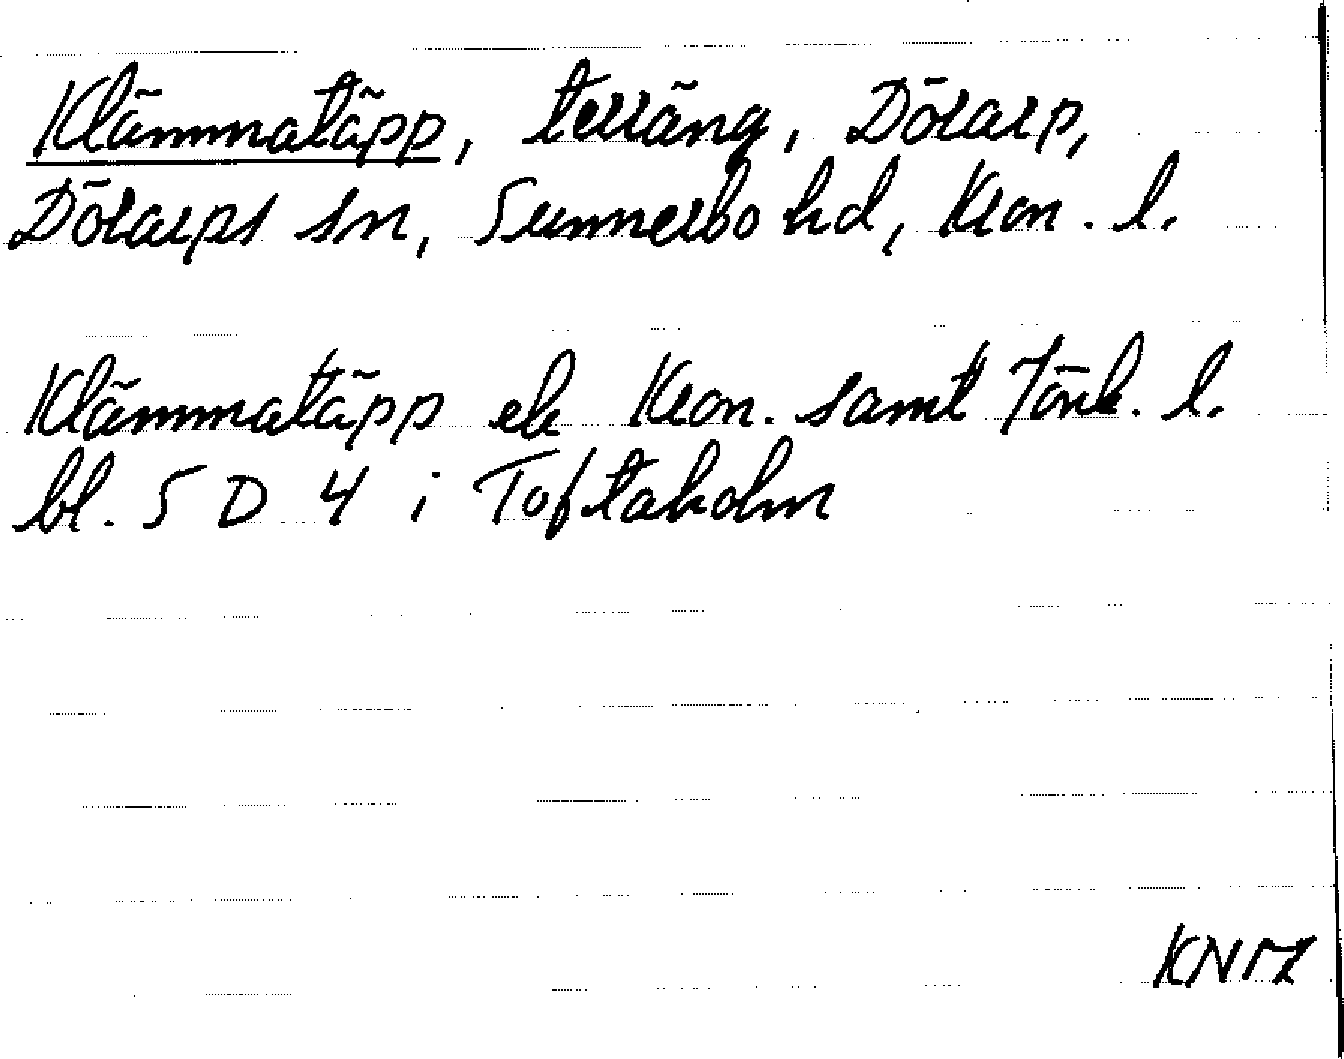 Klämmatäpp, terräng, Dörarp,
Dörarps sn, Sunnerbo hd, Kron. l.
Klämmatäpp ek Kron. samt Jönk. l.
bl. 5 D 4 i Toftaholm